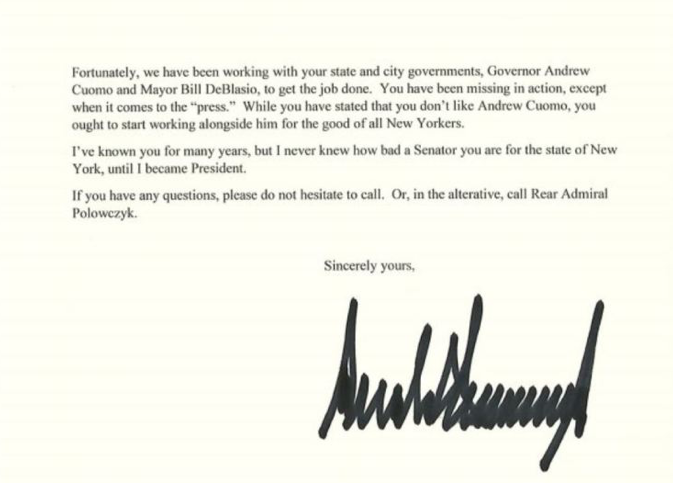 Fortunately, we have been working with your state and city governments, Governor Andrew
Cuomo and Mayor Bill DeBlasio, to get the job done.  You have been missing in action, except
when it comes to the “press.”  While you have stated that you don’t like Andrew Cuomo, you
ought to start working alongside him for the good of all New Yorkers.
I’ve known you for many years, but I never knew how bad a Senator you are for the state of New
York, until I became President.
If you have any questions, please do not hesitate to call.  Or, in the alternative, call Rear Admiral
Polowczyk.
Sincerely yours,